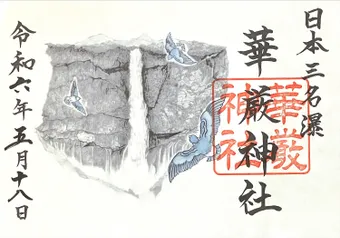 日本三名瀑
華厳神社
華厳神社
令和六年五月十八日